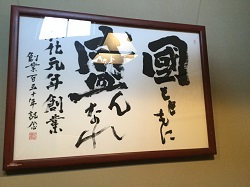 國とともに
盛んなれ
文化元年創業
創業百五十年記念